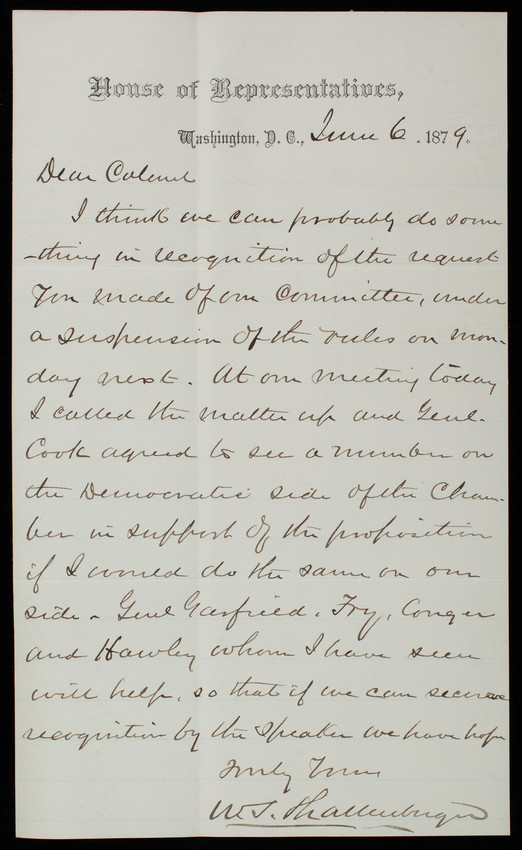 House of Representatives,
Washington, D. C., June 6. 1879.
Dear Colonel
I think we can probably do some
-thing in recognition of the request
you made of our Committee, under
a suspension of the rules on Mon-
day next. At our meeting today
I called the matter up and Genl.
Cook agreed to see a number on
the Democratic side of the Cham-
ber in support of the proposition
if I would do the same on our
side. Genl Garfield, Fry, Conger
and Hawley whom I have seen
will help, so that if we can secure
recognition by the Speaker we have hope
Truly Yours
W. S. Shallenberger